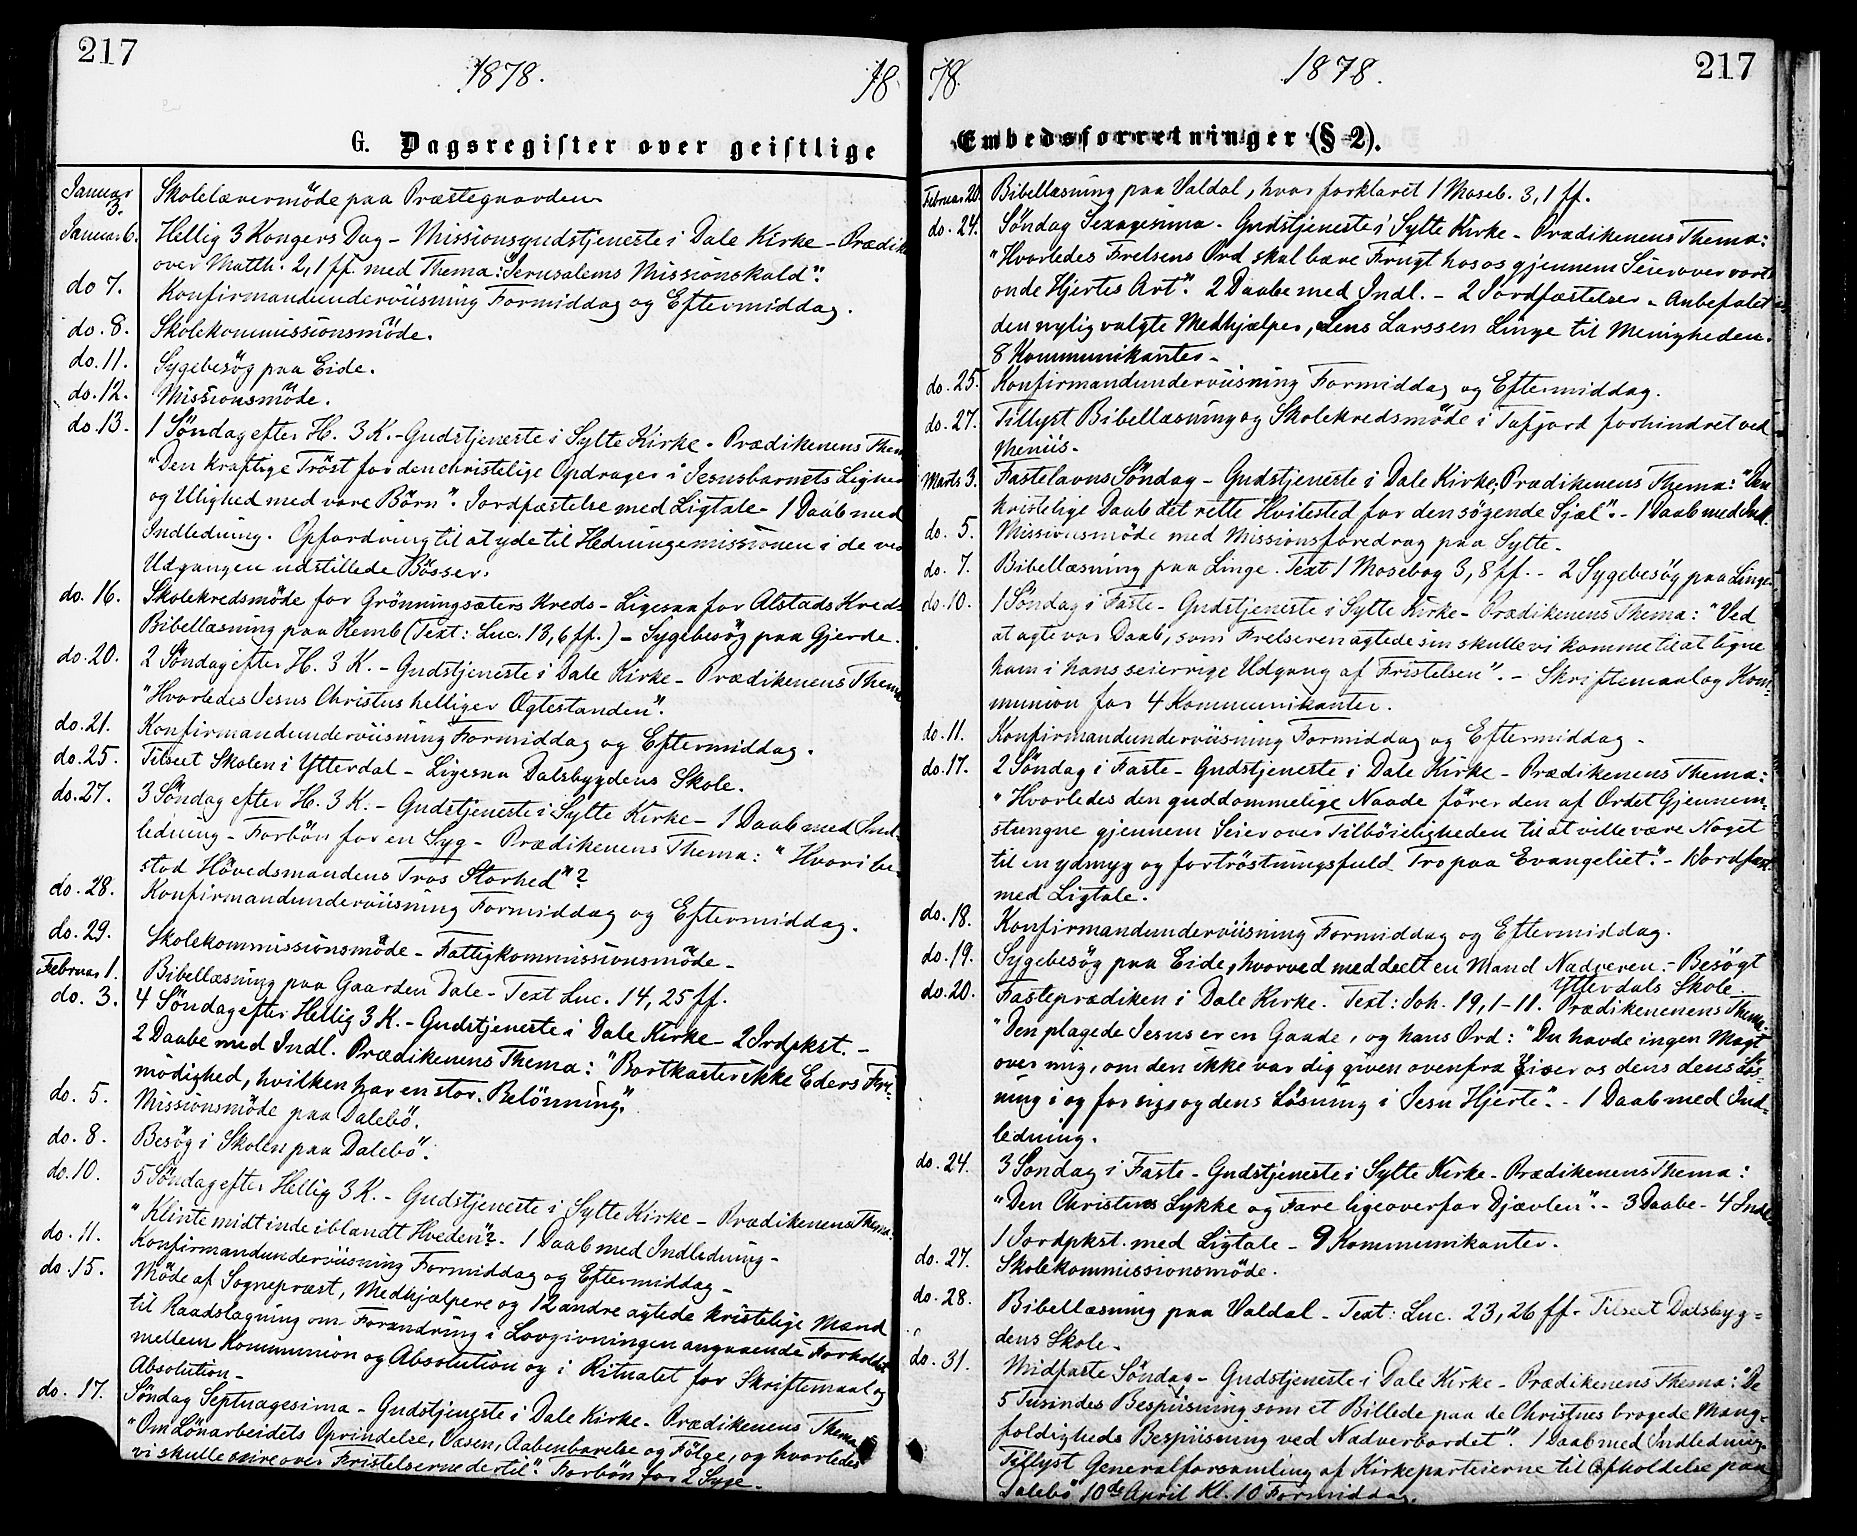 217
1878.
18
G. Dagsregister over geistlige
Januar 3. Skolelærermöde paa Præstegaarden
Januar 6. Hellig 3 Kongers Dag - Missionsgudstjeneste i Dale Kirke - Prædik
over Matth. 2,1 ff. med Thema: "Jerusalems Missionskald".
do 7. Konfirmandunderviisning Formiddag og Eftermiddag.
do. 8. Skolekommissionsmöde.
do. 11. Sygebesög paa Eide.
do. 12. Missionsmöde.
do. 13. 1 Söndag efter H. 3 K. - Gudstjeneste i Sylte Kirke - Prædikenens Them
"Den kraftige Tröst for den christelige Opdrager i Jesusbarnets Lighed
og Ulighed med vore Börn". Jordfæstelse med Ligtale - 1 Daab med
Indledning. Opfordring til at yde til Hedningemissionen i de ved
Udgangen udstillede Bösser.
do. 16. Skolekredsmöde for Grönningsæters Kreds - Ligesaa for Alstads Kreds
Bibellæsning paa Remb (Text: Luc. 13,6 ff.) - Sygebesög paa Gjerde.
do. 20. 2 Söndag efter H. 3 K. - Gudstjeneste i Dale Kirke - Prædikenens Thema
"Hvorledes Jesus Christus helliger Ægtestanden".
do. 21. Konfirmandunderviisning Formiddag og Eftermiddag.
do. 25. Tilseet Skolen i Ytterdal - Ligesaa Dalsbygdens Skole.
do. 27. 3 Söndag efter H. 3 K. - Gudstjeneste i Sylte Kirke - 1 Daab med Ind-
ledning - Forbön for en Syg - Prædikenens Thema: "Hvori be-
stod Hövedsmandens Tros Storhed"?
do. 28. Konfirmandunderviisning Formiddag og Eftermiddag.
do. 29. Skolekommissionsmöde - Fattigkommissionsmöde -
Februar 1. Bibellæsning paa Gaarden Dale - Text Luc. 14, 25 ff.
do. 3. 4 Söndag efter Hellig 3 K. - Gudstjeneste i Dale Kirke - 2 Jrdpkst. -
2 Daabe med Indl. Prædikenens Thema: "Bortkaster ikke Eders Fri-
modighed, hvilken har en stor Belönning".
do. 5. Missionsmöde paa Dalebö.
do. 8. Besög i Skolen paa Dalebö.
do. 10. 5 Söndag efter Hellig 3 K. - Gudstjeneste i Sylte Kirke - Prædikenens Thema:
"Klinte midt inde iblandt Hveden"? - 1 Daab med Indledning -
do. 11. Konfirmandunderviisning Formiddag og Eftermiddag -
do. 15. Möde af Sognepræst, Medhjælpere og 12 andre agtede kristelige Mænd
til Raadslagning om Forandring i Lovgivningen angaaende Forholdet
mellem Kommunion og Absolution og i Ritualet for Skriftemaal og
Absolution -
do. 17. Söndag Septuagesima - Gudstjeneste i Dale Kirke - Prædikenens Thema
"Om Lönarbeidets Oprindelse, Væsen, Aabenbarelse og Fölge, og hvorledes
vi skulle seire over Fristelserne dertil". Forbön for 2 Syge.
78.
1878.
217
Embedsforretninger (§ 2).
Februar 20. Bibellæsning paa Valdal, hvor forklaret 1 Moseb. 3,1 ff.
do. 24. Söndag Sexagesima - Gudstjeneste i Sylte Kirke - Prædikenens Thema:
"Hvorledes Frelsens Ord skal bære Frugt hos os gjennem Seier over vort
onde Hjertes Art". 2 Daabe med Indl. - 2 Jordfæstelser - Anbefalet
den nylig valgte Medhjælper, Jens Larssen Linge til Menigheden.
8 Kommunikanter -
do. 25. Konfirmandunderviisning Formiddag og Eftermiddag.
do. 27. Tillyst Bibellæsning og Skolekredsmöde i Tafjord forhindret ved
Meniis -
Marts 3. Fastelavns Söndag - Gudstjeneste i Dale Kirke, Prædikenens Thema: "Den
kristelige Daab det rette Hvilested for den sögende Sjæl". - 1 Daab med Indl.
do. 5. Missionsmöde med Missionsforedrag paa Sylte -
do. 7. Bibellæsning paa Linge. Text 1 Mosebog 3,8 ff. - 2 Sygebesög paa Linge
do. 10. 1 Söndag i Faste - Gudstjeneste i Sylte Kirke - Prædikenens Thema: "Ved
at agte vor Daab, som Frelseren agtede sin skulle vi komme til at ligne
ham i hans seierrige Udgang af Fristelsen". - Skriftemaal og Kom-
munion for 4 Kommunikanter.
do. 11. Konfirmandunderviisning Formiddag og Eftermiddag -
do. 17. 2 Söndag i Faste - Gudstjeneste i Dale Kirke - Prædikenens Thema:
"Hvorledes den guddommelige Naade förer den af Ordet Gjennem-
stungne gjennem Seier over Tilböieligheden til at ville være Noget
til en ydmyg og fortröstningsfuld Tro paa Evangeliet". - 1 Jordfæst.
med Ligtale.
do. 18. Konfirmandunderviisning Formiddag og Eftermiddag.
do. 19. Sygebesög paa Eide, hvorved meddeelt en Mand Nadveren. - Besögt
Ytterdals Skole.
do. 20. Fasteprædiken i Dale Kirke. Text: Joh. 19,1-11. Prædikenenens Thema:
"Den plagede Jesus er en Gaade, og hans Ord: "Du havde ingen Magt
over mig, om den ikke var dig given ovenfra" giver os dens dens Lös-
ning i og for sig, og dens Lösning i Jesu Hjerte". - 1 Daab med Ind-
ledning.
do. 24. 3 Söndag i Faste - Gudstjeneste i Sylte Kirke - Prædikenens Thema:
"Den Christnes Lykke og Fare ligeoverfor Djævlen". - 3 Daabe - 4 Indl.
1 Jordpkst. med Ligtale - 9 Kommunikanter.
do. 27. Skolekommissionsmöde.
do. 28. Bibellæsning paa Valdal - Text: Luc. 23, 26 ff. Tilseet Dalsbyg-
dens Skole -
do. 31. Midfaste Söndag - Gudstjeneste i Dale Kirke - Prædikenens Thema: "De
5 Tusindes Bespiisning som et Billede paa de Christnes brogede Mang-
foldigheds Bespiisning ved Nadverbordet". 1 Daab med Indledning
Tillyst Generalforsamling af Kirkeparteierne til Afholdelse paa
Dalebö 10de April Kl. 10 Formiddag.